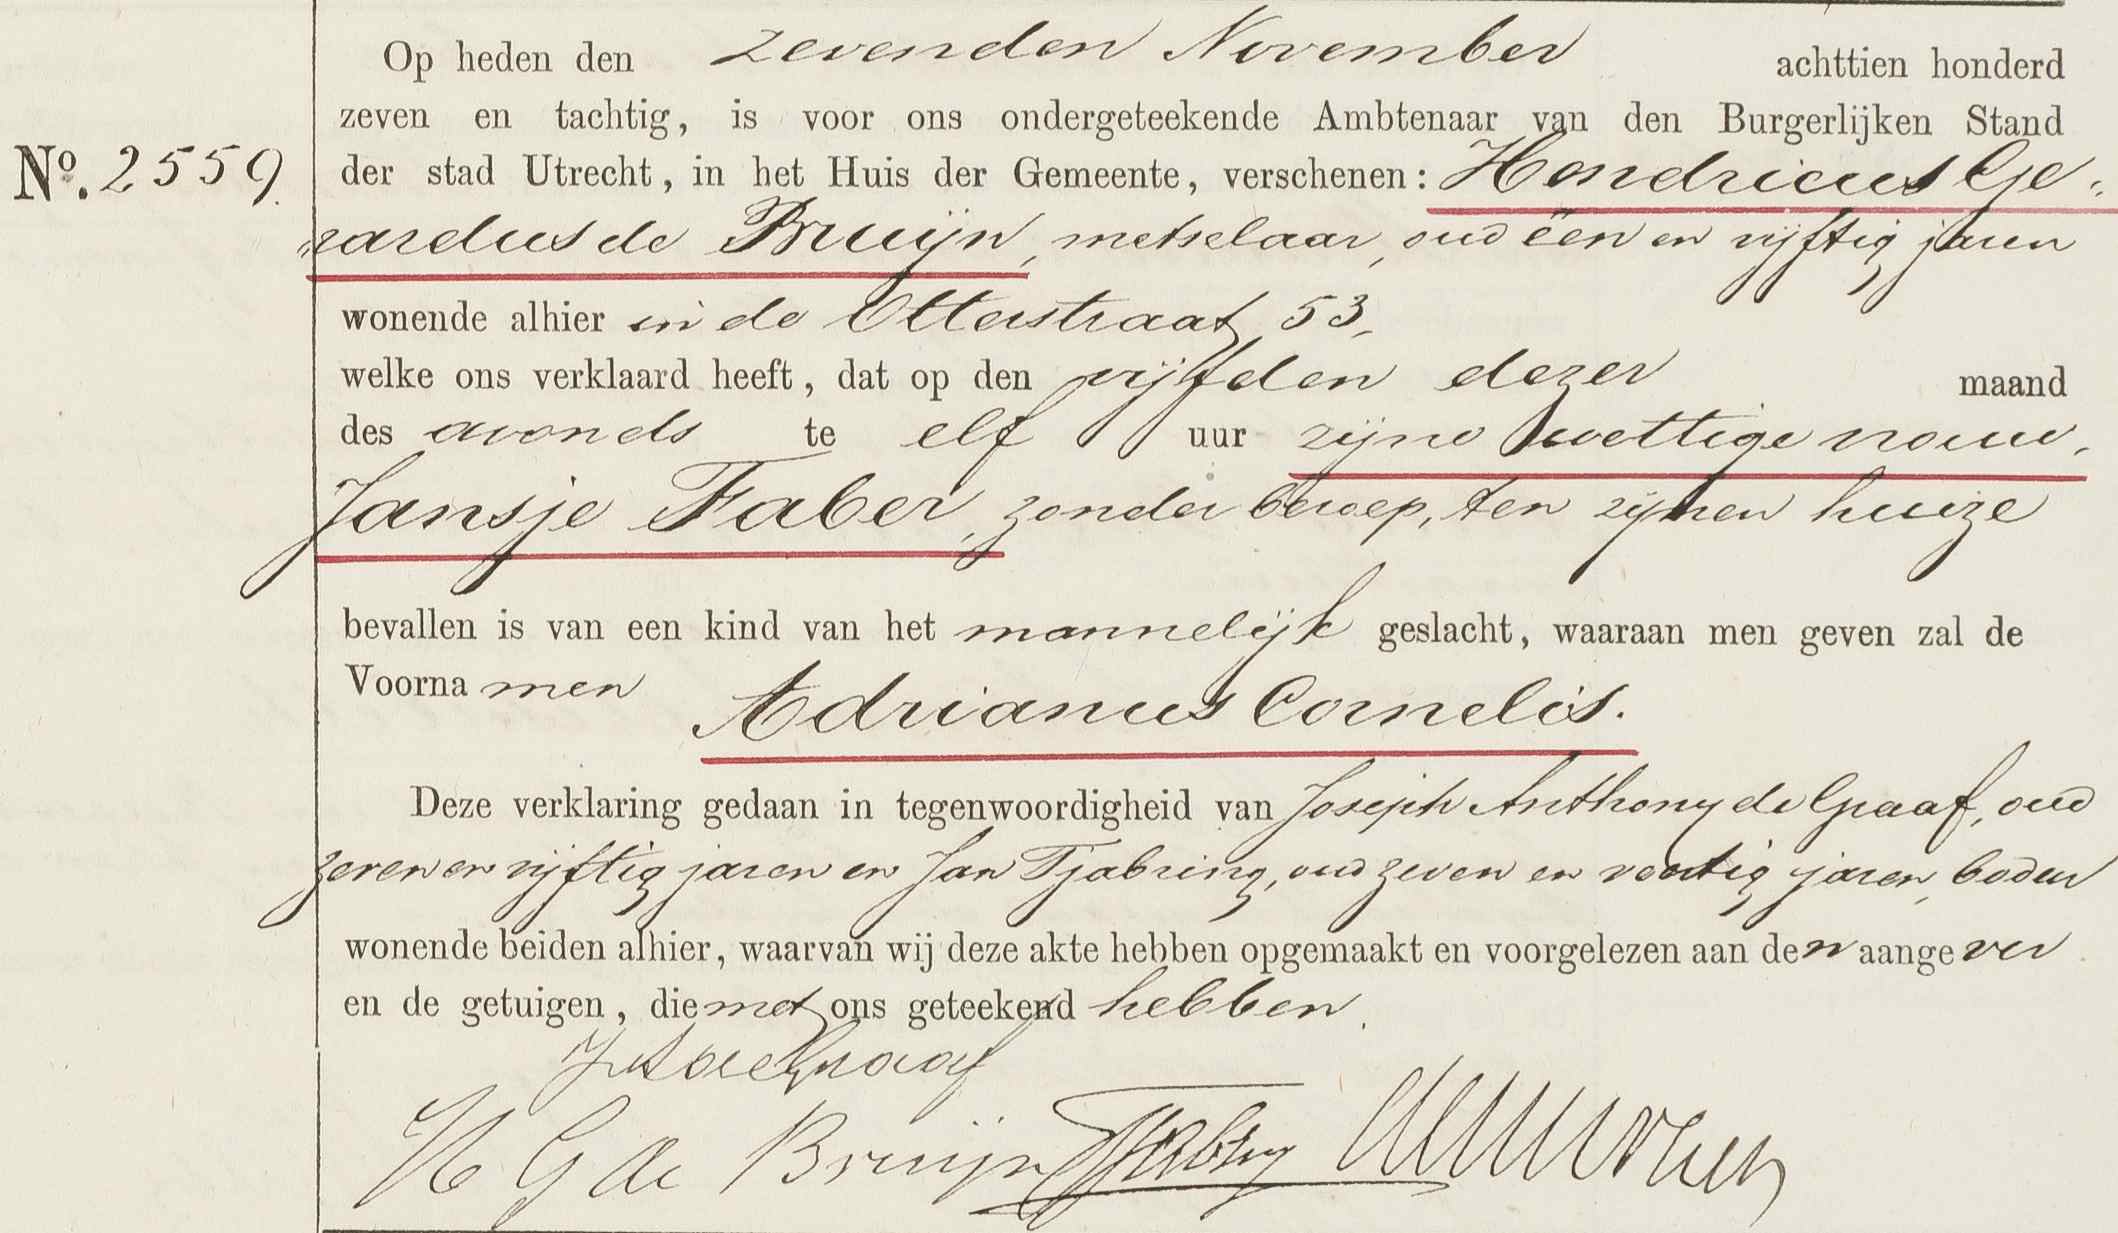 Op heden den zevenden November achttien honderd
zeven en tachtig, is voor ons ondergeteekende Ambtenaar van den Burgerlijken Stand
No. 2559.
der stad Utrecht, in het Huis der Gemeente, verschenen: Hendricus Ge„
„rardus de Bruijn, metselaar, oud één en vijftig jaren
wonende alhier in de Otterstraat 53,
welke ons verklaard heeft, dat op den vijfden dezer maand
des avonds te elf uur zijne wettige vrouw,
Jansje Faber, zonder beroep, ten zijnen huize
bevallen is van een kind van het mannelijk geslacht, waaraan men geven zal de
Voornamen Adrianus Cornelis.
Deze verklaring gedaan in tegenwoordigheid van Joseph Anthony de Graaf, oud
zeven en vijftig jaren en Jan Tjabring, oud zeven en veertig jaren, boden
wonende beiden alhier, waarvan wij deze akte hebben opgemaakt en voorgelezen aan den aangever
en de getuigen, die met ons geteekend hebben.
J A de Graaf
H G de Bruijn Tjabring